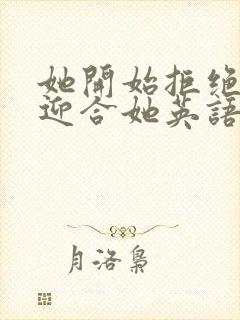 她開始拒绝
迎合她英語
月洛梟